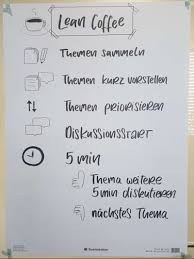 Lean Coffee
Themen sammeln
Themen kurz vorstellen
Themen priorisieren
Diskussionsstart
5 min
Thema weitere
5 min diskutieren
nächstes Thema